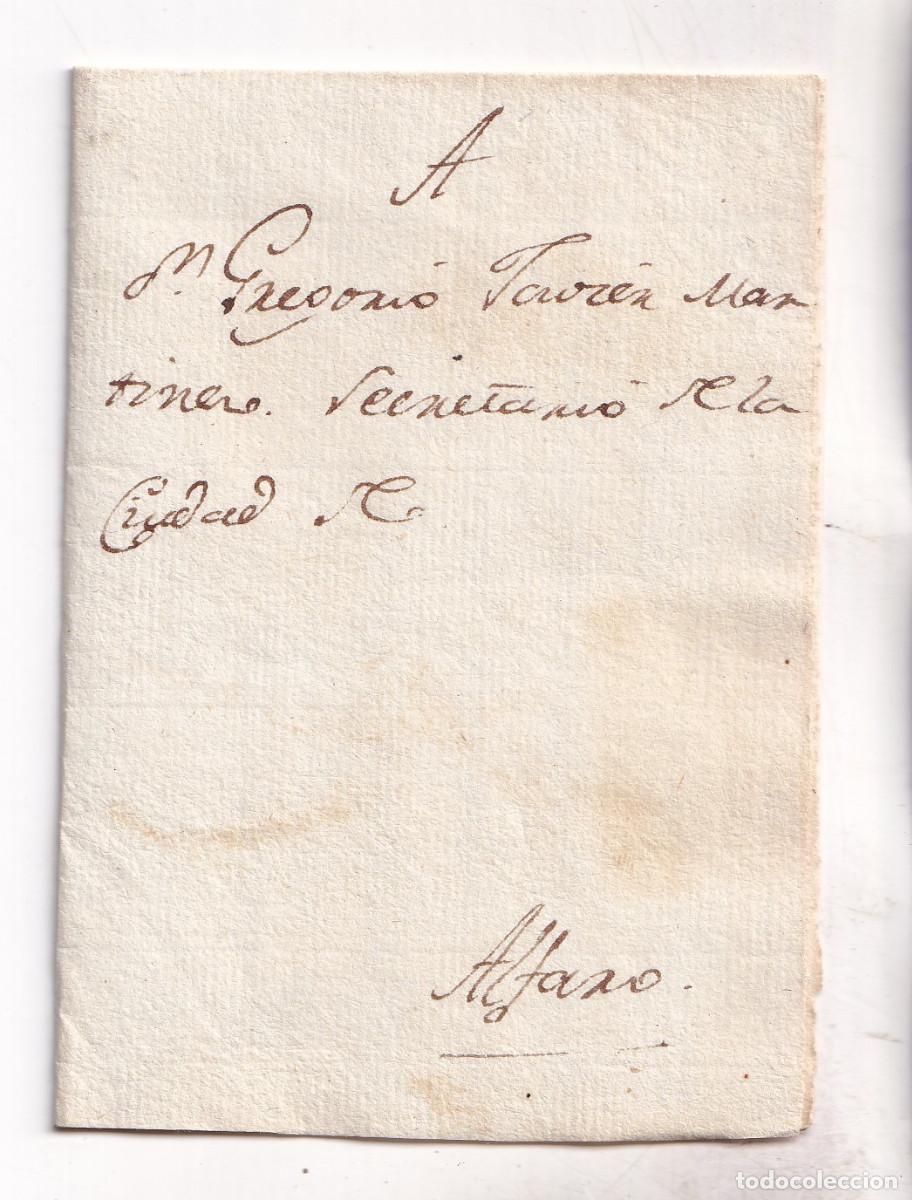 A
Dn Gregorio Javier Mar
tinez. Secretario de la
Ciudad de
Alfaro.
todocoleccion